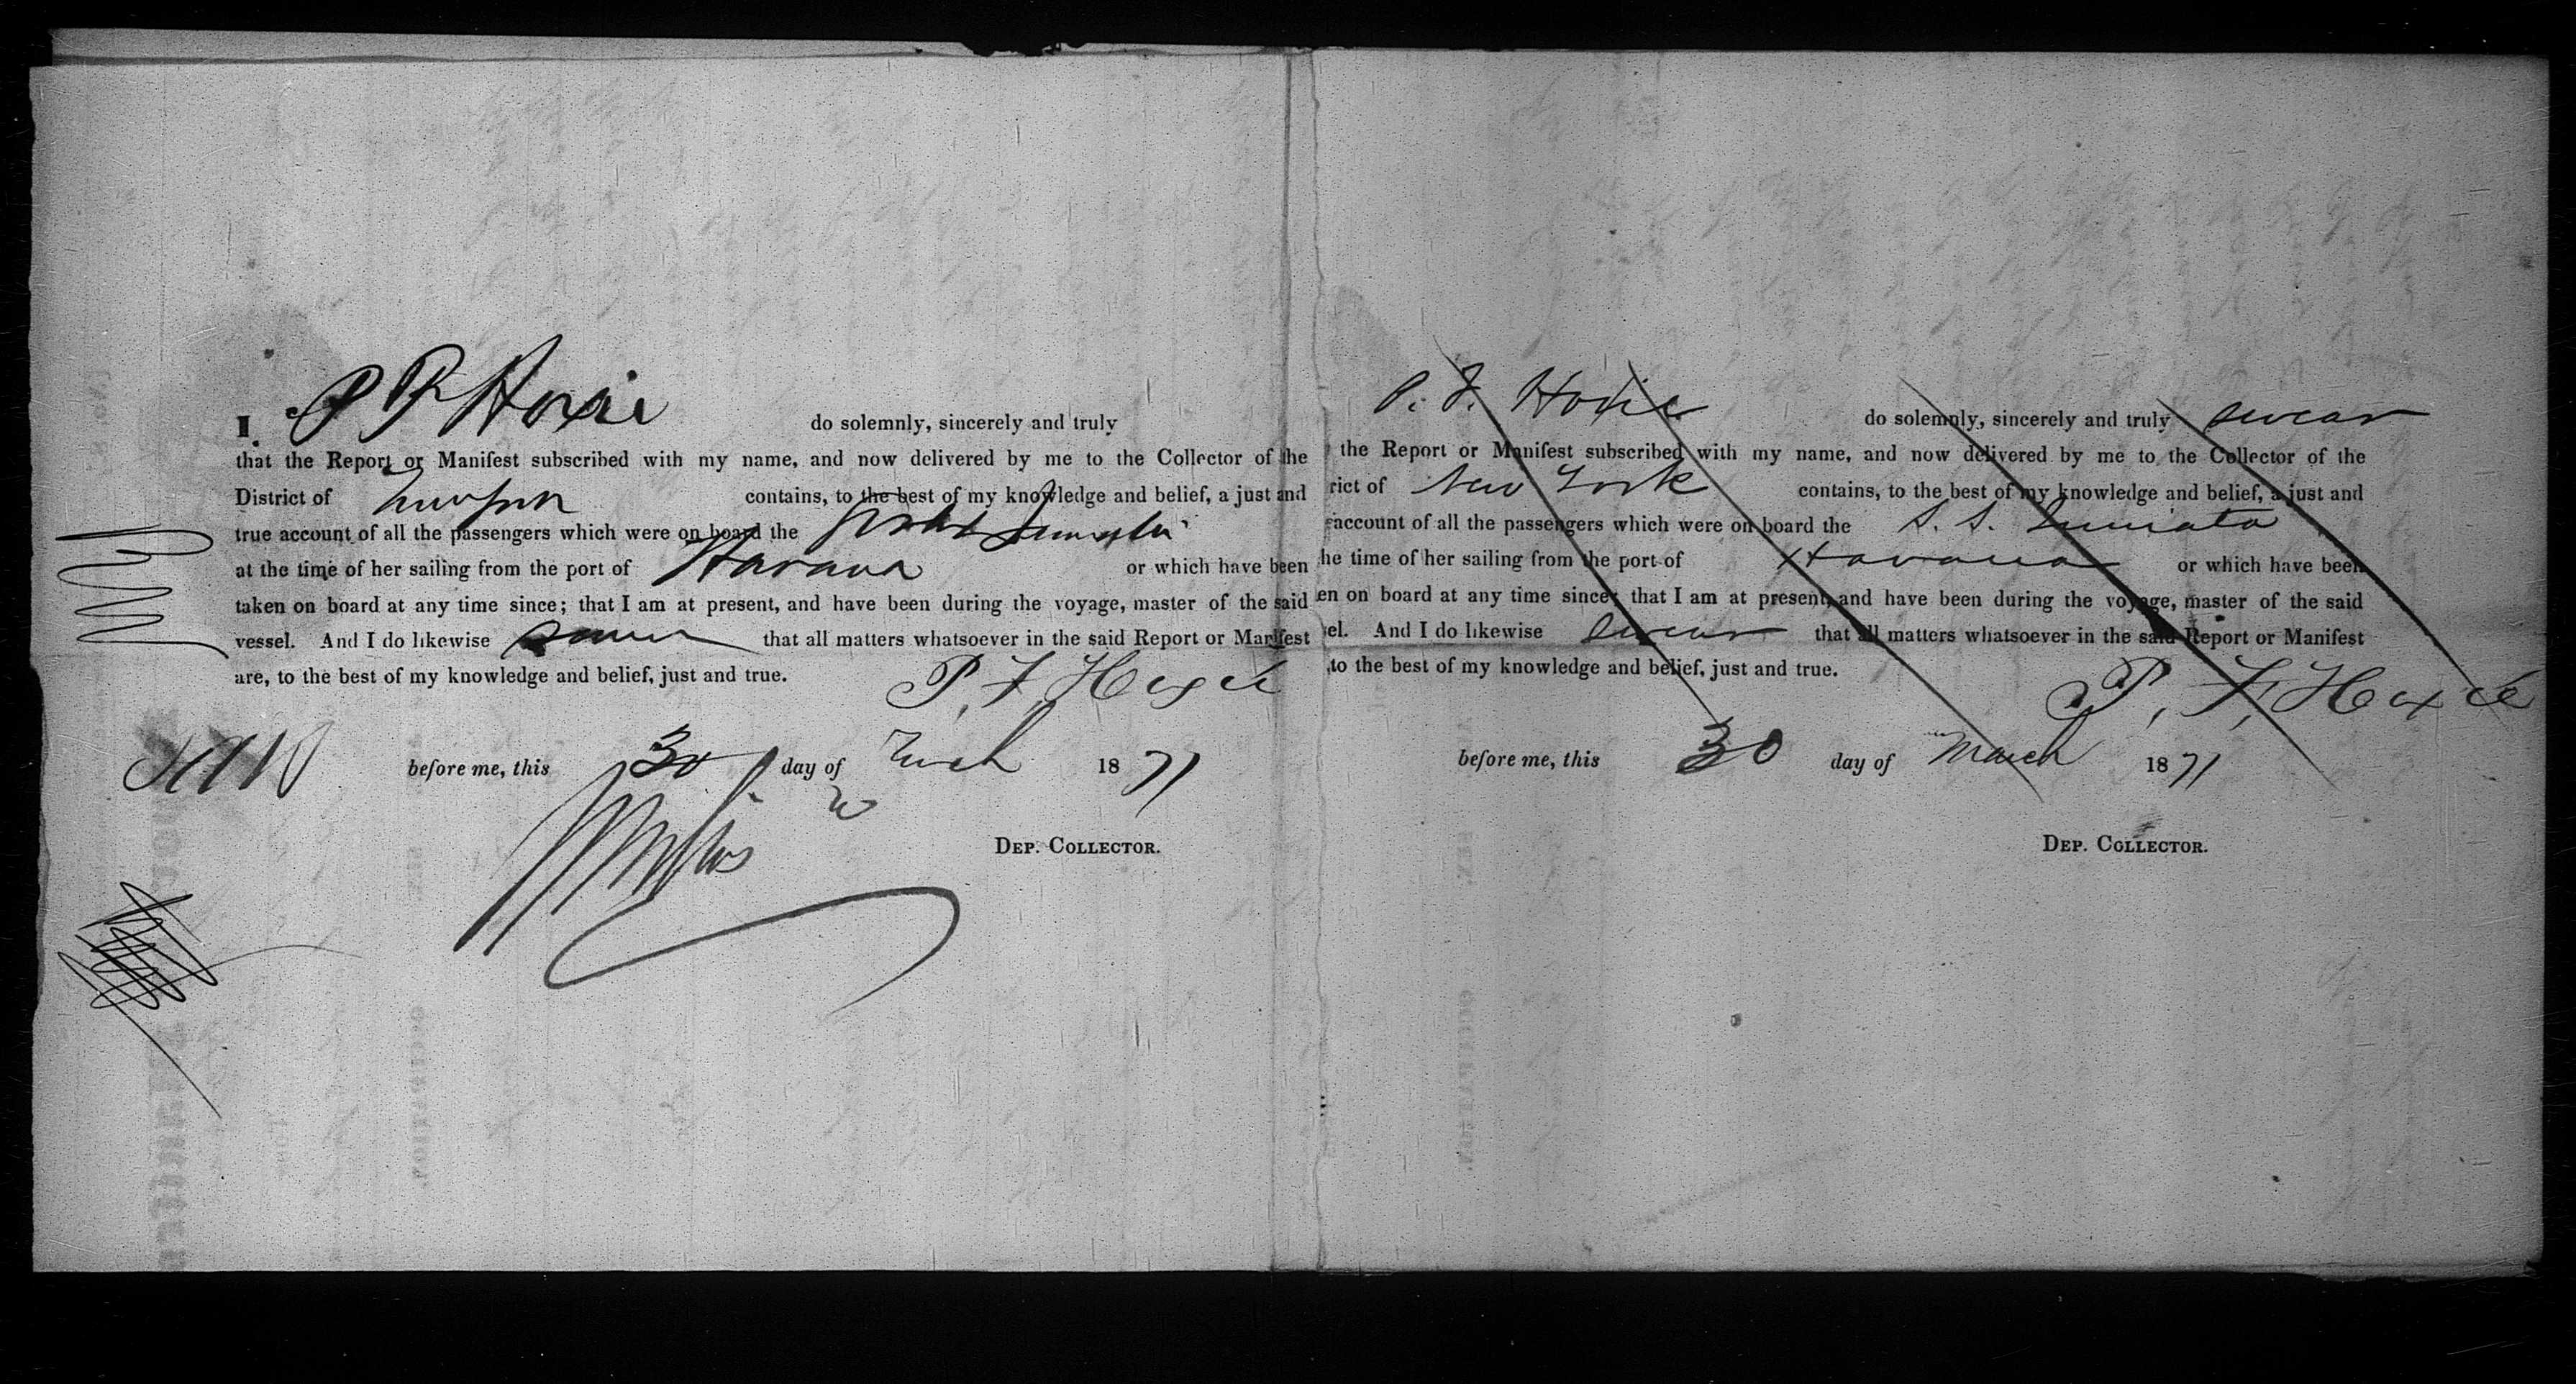 I, P F Hoxie do solemnly, sincerely and truly
that the Report or Manifest subscribed with my name, and now delivered by me to the Collector of the
District of New York contains, to the best of my knowledge and belief, a just and
true account of all the passengers which were on board the
at the time of her sailing from the port of Havana or which have been
taken on board at any time since; that I am at present, and have been during the voyage, master of the said
vessel. And I do likewise swear that all matters whatsoever in the said Report or Manifest
are, to the best of my knowledge and belief, just and true.
P. F. Hoxie
before me, this 30 day of March 1871
DEP. COLLECTOR.
P. F. Hoxie do solemnly, sincerely and truly swear
the Report or Manifest subscribed with my name, and now delivered by me to the Collector of the
rict of New York contains, to the best of my knowledge and belief, a just and
account of all the passengers which were on board the S. S. Juniata
he time of her sailing from the port of Havana or which have been
en on board at any time since; that I am at present, and have been during the voyage, master of the said
el. And I do likewise swear that all matters whatsoever in the said Report or Manifest
to the best of my knowledge and belief, just and true.
P. F. Hoxie
before me, this 30 day of March 1871
DEP. COLLECTOR.